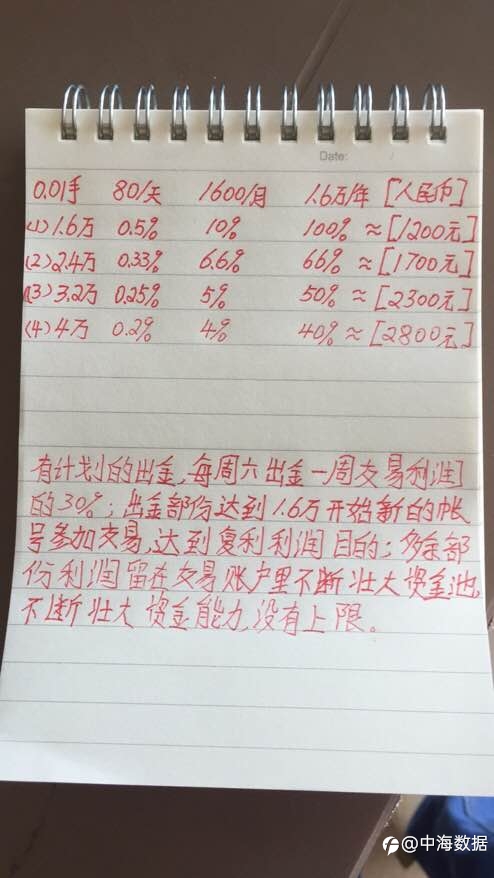 Date:
0.01手 80/天 1600/月 1.6万/年 [人民币]
(1) 1.6万 0.5% 10% 100% ≈ [1200元]
(2) 2.4万 0.33% 6.6% 66% ≈ [1700元]
(3) 3.2万 0.25% 5% 50% ≈ [2300元]
(4) 4万 0.2% 4% 40% ≈ [2800元]
有计划的出金,每周六出金一周交易利润
的30%;出金部份达到1.6万开始新的帐
号参加交易,达到复利利润目的;多余部
份利润留在交易账户里不断壮大资金池,
不断壮大资金能力,没有上限。
@中海数据